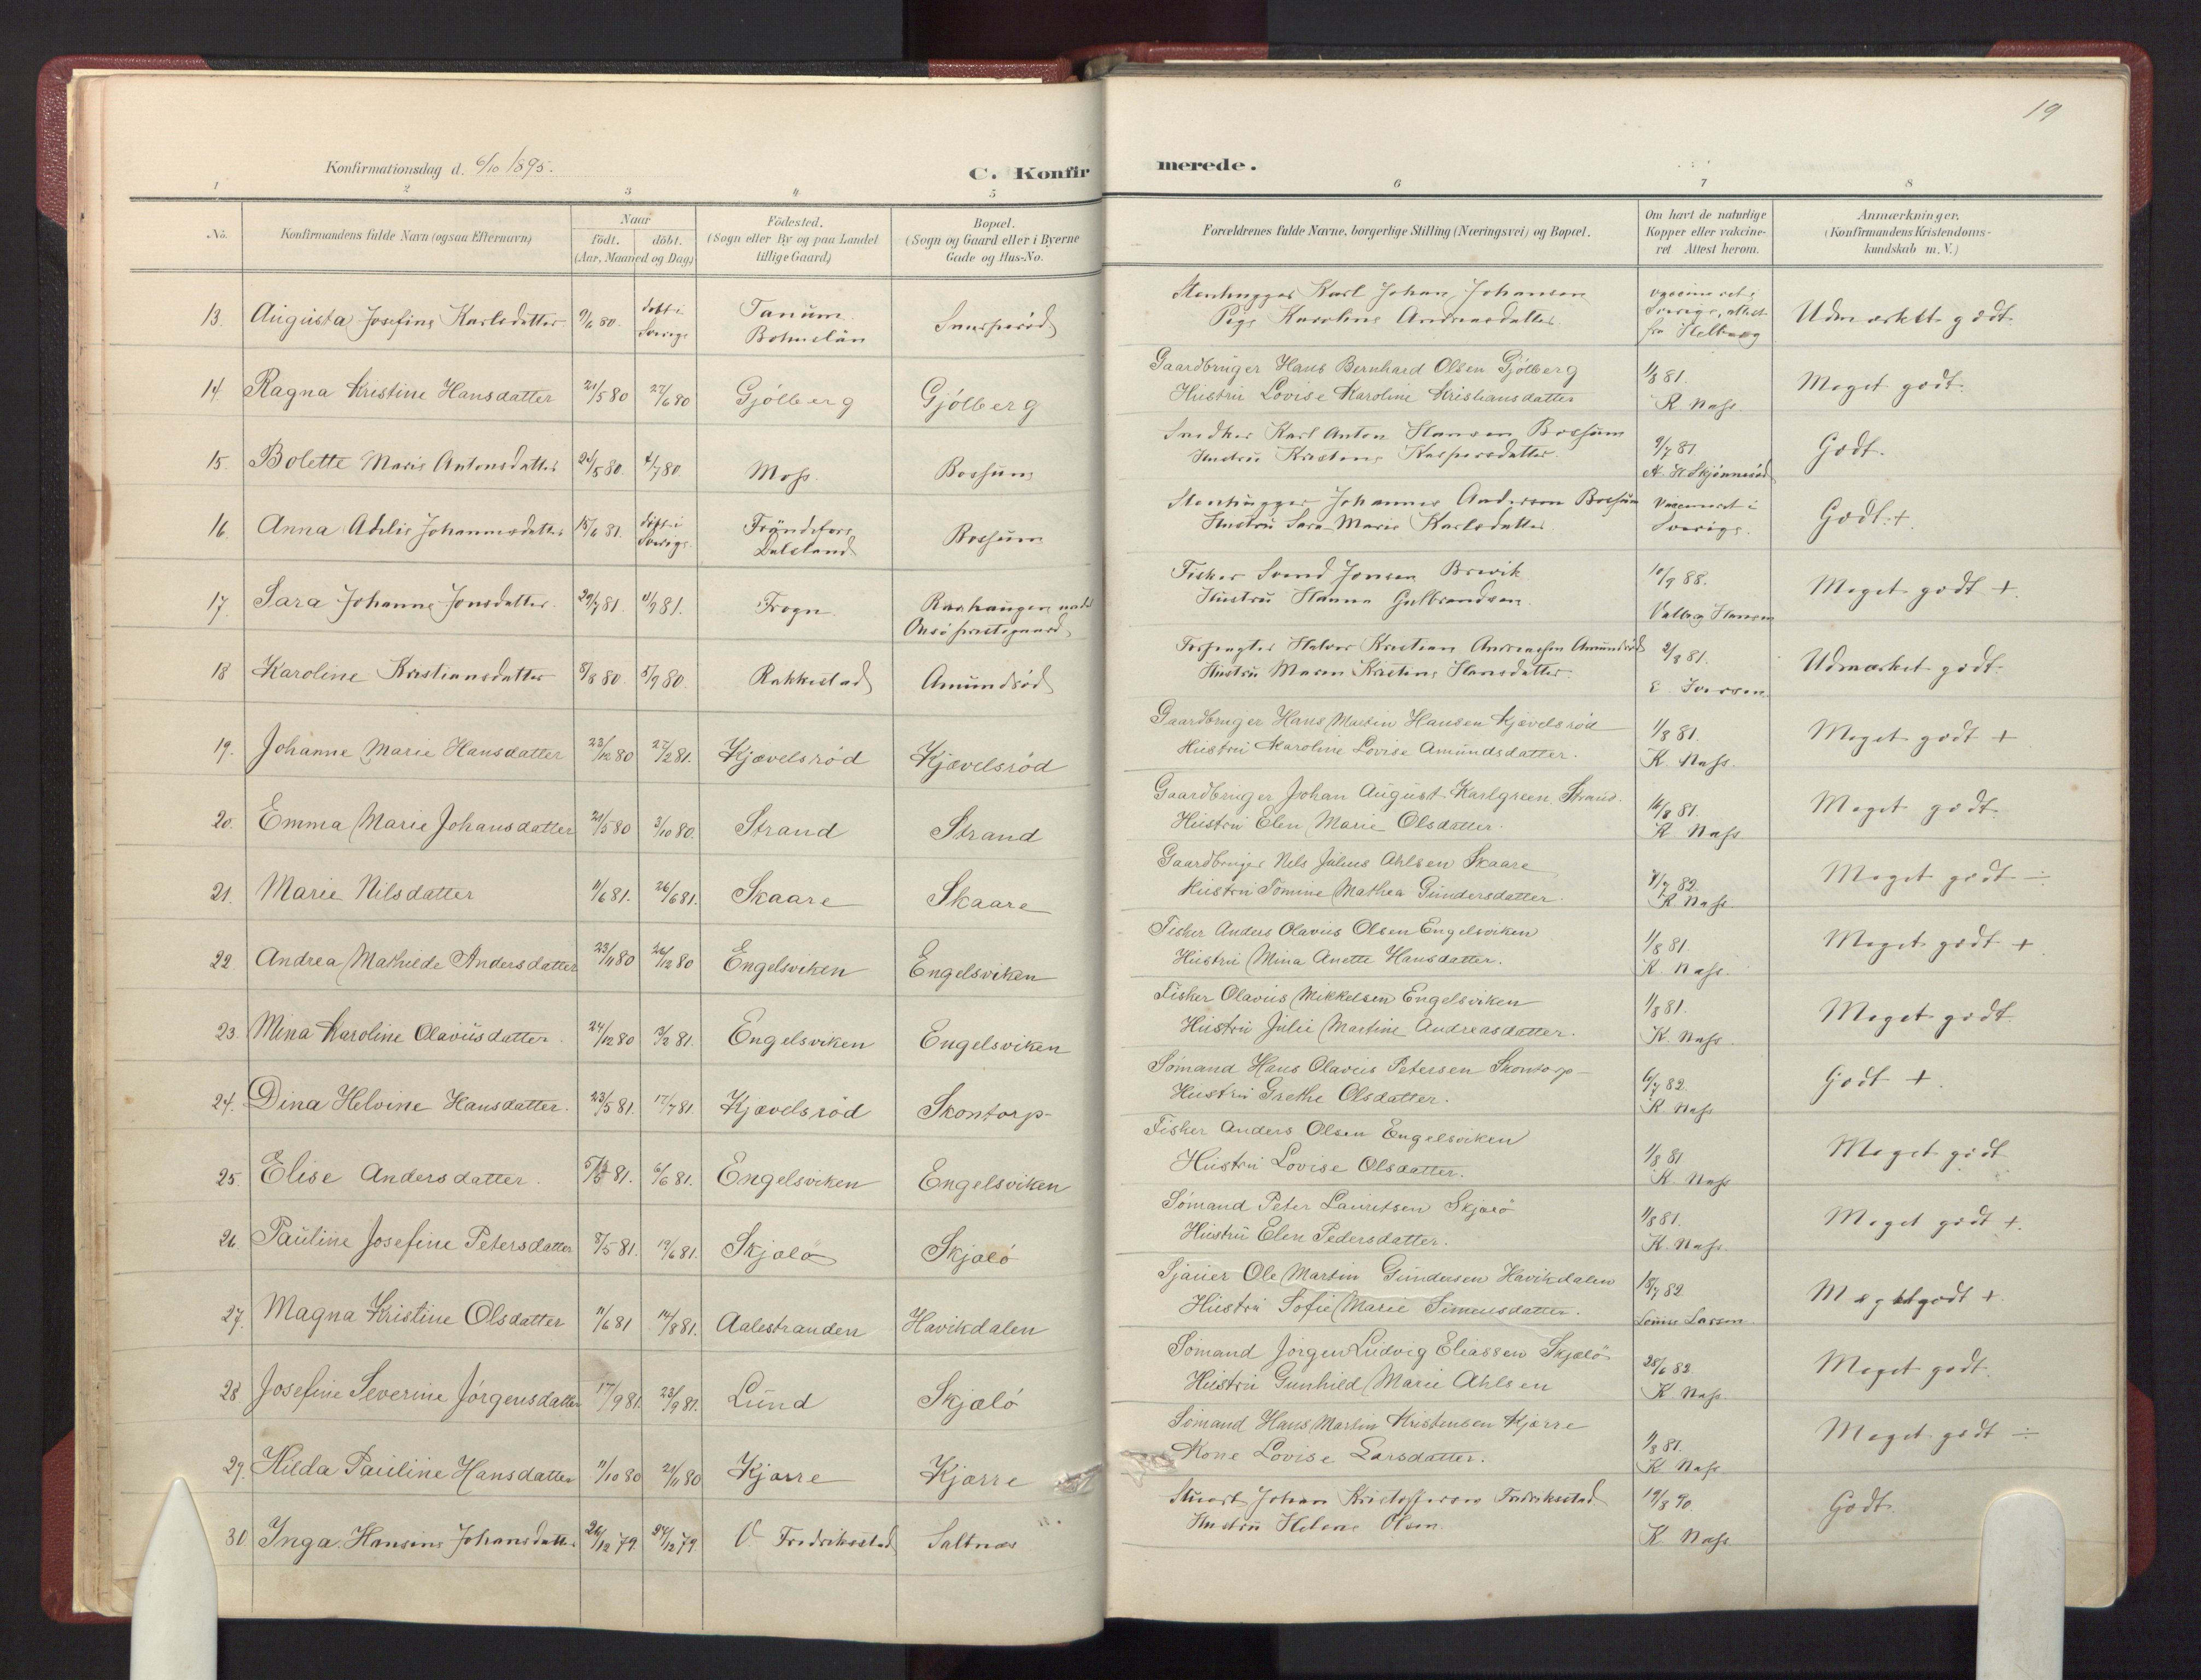 19
Konfirmationsdag d. 6/10 1895.
C. Konfirmerede.
1 2 3 4 5 6 7 8
No.
Konfirmandens fulde Navn (ogsaa Efternavn)
Naar
födt. döbt.
(Aar, Maaned og Dag)
Födested.
(Sogn eller By og paa Landet
tillige Gaard)
Bopæl.
(Sogn og Gaard eller i Byerne
Gade og Hus-No.
Forældrenes fulde Navne, borgerlige Stilling (Næringsvei) og Bopæl.
Om havt de naturlige
Kopper eller vakcine-
ret Attest herom.
Anmærkninger.
(Konfirmandens Kristendoms-
kundskab m. V.)
13. Augusta Josefine Karlsdatter 9/6 80. döbt i Sverige Tanum Bohuslän
Stenhugger Karl Johan Johansen
Pige Karoline Andreasdatter
Sverige, attest
Udmærket godt.
14 Ragna Kristine Hansdatter 21/5 80 27/6 80 Gjölberg Gjölberg
Gaardbruger Hans Bernhard Olsen Gjölberg 1/8 81.
Hustru Lovise Karoline Kristiansdatter K. Næss.
Meget godt.
15. Bolette Marie Antonsdatter 24/5 80. 4/7 80. Moss. Bossum
Snedker Karl Anton Hansen Bossum 9/7 81
Hustru Kristine Kaspersdatter.
Godt.
16. Anna Adelie Johannesdatter 15/6 81. döbt i Sverige Dalsland Bossum
Stenhugger Johannes Anderson Bossum Vaccineret i
Hustru Sara Marie Karlsdatter Sverige.
Godt +.
17. Sara Johanne Jonsdatter. 29/7 81. 11/9 81. Frogn. Onsö prestegaard
Fisker Svend Jonsen Brevik 10/9 88.
Hustru Hanna Gulbrandsen. Valborg Hansen
Meget godt +.
18 Karoline Kristiansdatter 8/8 80. 5/9 80. Rakkestad Amundröd
Forpagter Halvor Kristian Andreassen Amundröd 2/8 81.
Hustru Maren Kristine Hansdatter. E. Iversen.
Udmærket godt.
19. Johanne Marie Hansdatter 23/12 80 27/2 81. Kjævelsröd Kjævelsröd
Gaardbruger Hans Martin Hansen Kjævelsröd 1/8 81.
Hustru Karoline Lovise Amundsdatter. K. Næss.
Meget godt +
20. Emma Marie Johansdatter 21/5 80 3/10 80. Strand Strand
Gaardbruger Johan August Karlgreen Strand. 16/8 81.
Hustru Elen Marie Olsdatter. K Næss.
Meget godt.
21. Marie Nilsdatter 11/6 81. 26/6 81. Skaare Skaare
Gaardbruger Nels Julius Ahlsen Skaare 7/7 82.
Hustru Tomine Mathea Gundersdatter. K Næss.
Meget godt ÷
22. Andrea Mathilde Andersdatter 23/11 80 26/12 80 Engelsviken Engelsviken
Fisker Anders Olavus Olsen Engelsviken 1/8 81.
Hustru Mina Anette Hansdatter. K. Næss.
Meget godt +
23. Mina Karoline Olavusdatter. 24/12 80 13/2 81. Engelsviken Engelsviken
Fisker Olavus Mikkelsen Engelsviken 1/8 81.
Hustru Julie Martine Andreasdatter. K. Næss.
Meget godt.
24. Dina Helvine Hansdatter. 23/5 81. 17/7 81. Kjævelsröd Skontorp
Sömand Hans Olavus Petersen Skontorp 6/7 82.
Hustru Grethe Olsdatter. K Næss
Godt +.
25. Elise Andersdatter. 6/6 81. Engelsviken Engelsviken
Fisker Anders Olsen Engelsviken 1/8 81
Hustru Lovise Olsdatter. K. Næss
Meget godt
26. Pauline Josefine Petersdatter 8/5 81. 19/6 81. Skjælö Skjælö
Sömand Peter Lauritsen Skjælö 1/8 81.
Hustru Elen Pedersdatter. K. Næss.
Meget godt +.
27. Magna Kristine Olsdatter 11/6 81 14/8 81. Aalestranden Havikdalen
Sjauer Ole Martin Gundersen Havikdalen 18/7 82.
Hustru Sofie Marie Simensdatter. Larsen
Meget godt +.
28. Josefine Severine Jörgensdatter 17/9 81. 23/9 81. Lund Skjælö
Sömand Jörgen Ludvig Eliassen Skjælö 28/6 82.
Hustru Gunhild Marie Ahlsen K Næss.
Meget godt.
29. Hilda Pauline Hansdatter 11/10 80 21/11 80 Kjærre Kjærre
Sömand Hans Martin Kristensen Kjærre 1/8 81.
Kone Lovise Larsdatter. K. Næss
Meget godt ÷
30 Inga Hansine Johansdatter 26/12 79. V. Fredriksstad Saltnæs
Stuert Johan Kristoffersen Fredriksstad 19/8 90.
Hustru Helene Olsen. K. Næss
Godt